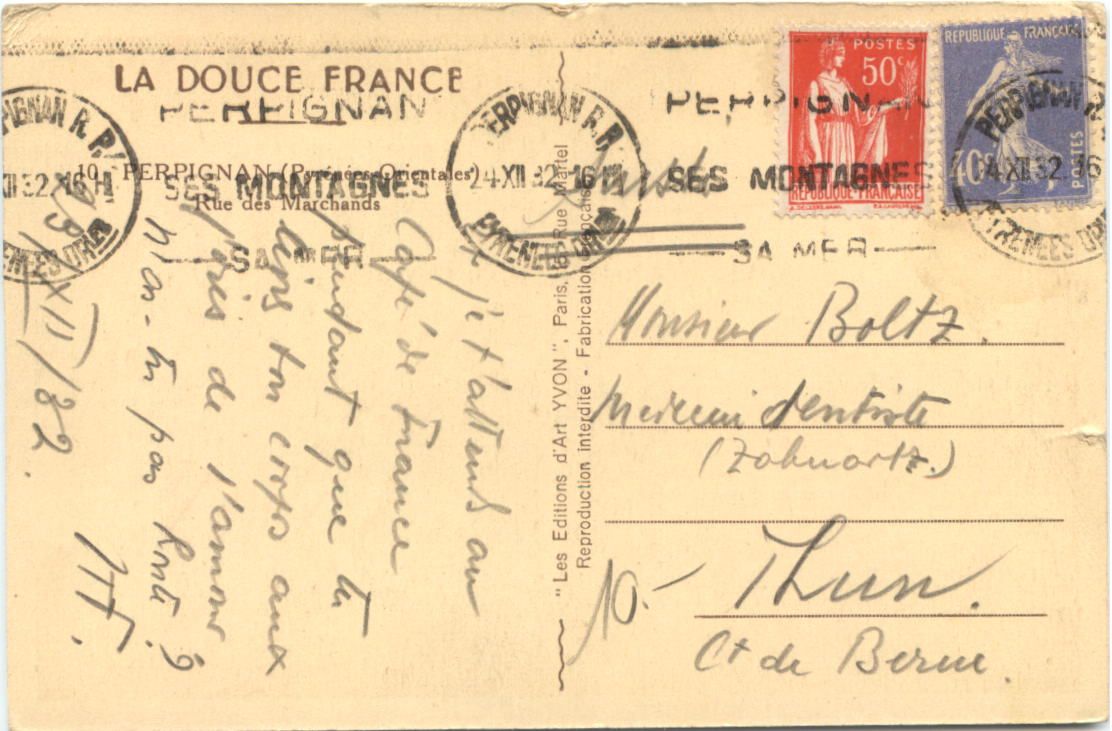 LA DOUCE FRANCE
10. PERPIGNAN (Pyrénées-Orientales)
Rue des Marchands
PERPIGNAN
SES MONTAGNES
SA MER
PERPIGNAN R.P.
24 XII 32 16
PYRENEES ORles
PERPIGNAN
SES MONTAGNES
SA MER
POSTES
50c
REPUBLIQUE FRANÇAISE
REPUBLIQUE FRANÇAISE
40c
POSTES
PERPIGNAN R.P.
4 XII 32 16
PYRENEES OR
"Les Editions d'Art YVON", Paris, Rue Martel
Reproduction interdite - Fabrication Française
je t'attends au
Café de France
pendant que tu
ton corps aux
de l'amour
n'as-tu pas honte ?
XII/32.
Monsieur Boltz.
Medecin dentiste
(Zahnartz.)
Thun.
Ct de Berne.
10.-